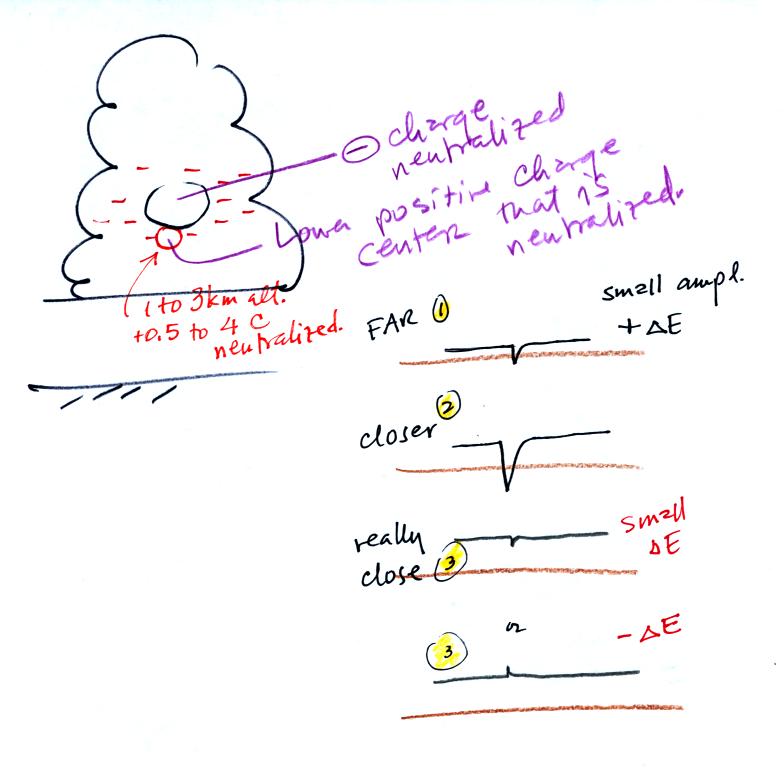 ⊖ charge
neutralized
Lower positive charge
center that is
neutralized.
1 to 3km alt.
+0.5 to 4 C
neutralized.
FAR ① small ampl.
+ΔE
closer ②
really
close ③
small
ΔE
③ or -ΔE